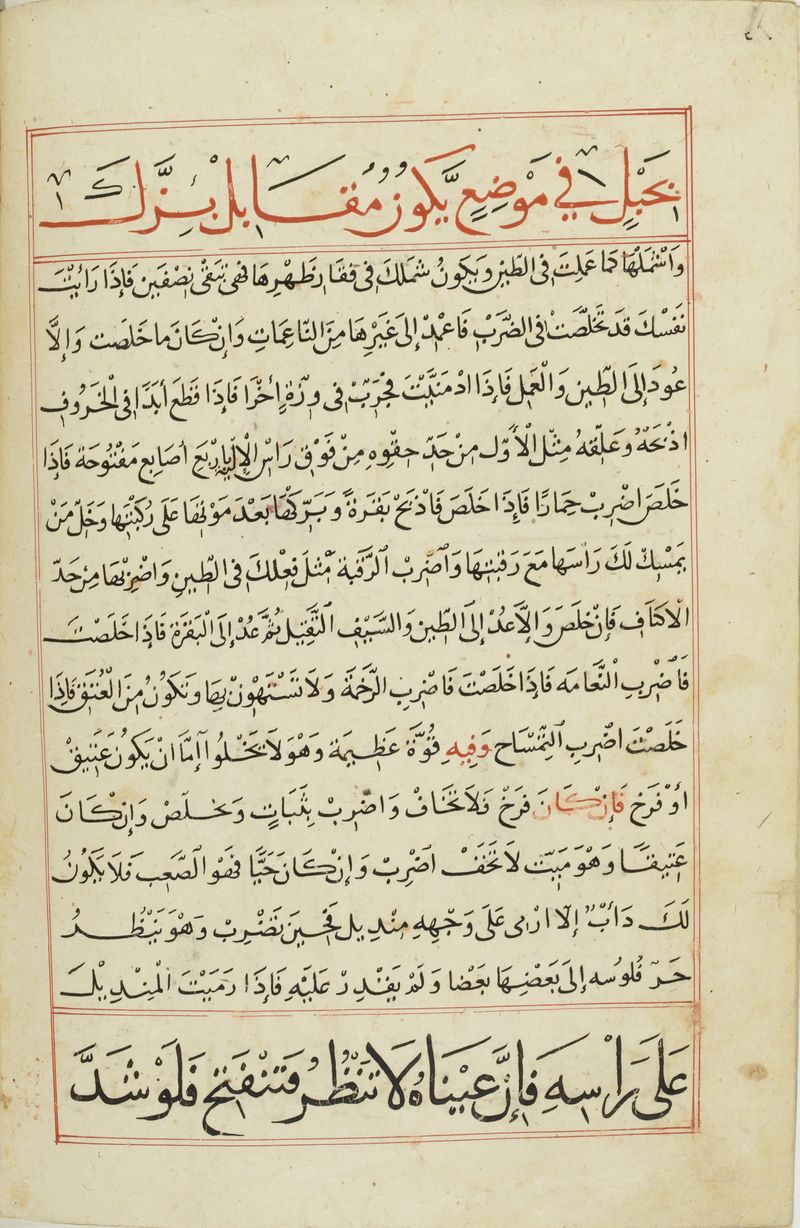 بحَبْلٍ في مَوْضِعٍ يَكونُ مُقَابل بَزّك
وَاشْمُلْهَا كمَا عَمِلتَ فى الطّين وَيَكونُ شملكَ فى فقَار ظَهْرِهَا فهى تَبْقى نصْفَين فَإذَا رَأيْتَ
نَفسْكَ قد تخَلّصَتْ فى الضّرَبْ فَاعْمدْ إلى غَيْرهَا مِنَ النّاعِمَاتِ وَإنْ كَانَ ما خَلَصَت وَإلَّا
عُودَ إلَى الطّين وَالْعَمل فَإذَا ادْمَنَيْتَ فجْرَبْ فى وزّةٍ أُخْرَا فَإذَا قَطَعَ أبَدًا فى الْخَرُوف
اذْبَحَهُ وَعَلّقهُ مِثْل الْأوّل مِنْ حَدّ حِقْوِهِ مِنْ فَوْق رَاسْ الإليا بارْبَعَ أصَابع مَفْتُوحَة فَإذَا
خَلصَ اضْربْ حِمَارًا فَإذَا خَلصَ فَاذْبَحْ بَقرَةً وَبَرّكهَا بَعْدَ مَوْتهَا عَلَى رُكبَتْهَا وَخَلّ مَنْ
يَمْسِكْ لَكَ رَأسَهَا مَعَ رَقبتهَا وَاضْربْ الرَّقبَة مثْلَ فِعْلكَ فى الطّين وَاضْربْهَا مِنْ حَدّ
الْاكتَاف فَإنْ خلصَ وَإلَّا عُدْ إلىَ الطّين وَالسّيْف الثّقِيل ثُمَّ عَدْ إلَى الْبَقرَة فَإذَا خَلصْتَ
فَاضْربِ النَّعَامَه فَإذَا خَلصْتَ فَاضْربِ الرَّخمَةَ وَلَا تَسْتهوْنْ بهَا وَتكُونُ مِنَ الْعُنقِ فَإذَا
خَلصْتَ اضْربِ التّمْسَاح وَفِيهِ قُوّة عَظِيمَة وَهْوَ لَا يَخْلُوا إمَّا انْ يَكونَ عَتيقْ
اوْ فَرَخ فَإنْ كَانَ فَرَخْ فَلَا تَخَافْ وَاضْربْ بثَبَاتٍ وَتخلصْ وَإنْ كَانَ
عَتيقًا وَهْوَ مَيّت لَا تَخَفْ اضْربْ وَإنْ كَانَ حَيًّا فهْوَ الصّعَب فَلَا يَكُونُ
لَكَ دَأبٌ إلّا ارْمى عَلَى وَجْهِهِ مِنْدِيل فَحِينَ تَضْربْ وَهْوَ يَنْظُرُ
حَرّ فُلوُسه إلىَ بَعْضِهَا بَعْضًا وَلَمْ يَقْدِرْ عَلَيْهِ فَإذَا رَمَيْتَ الْمِنْدِيلَ
عَلَى رَأسِهِ فَإنَّ عَيْنَاهُ لَا تَنْظُرُ فتَنْفَتح فَلَوْ شَدَّ